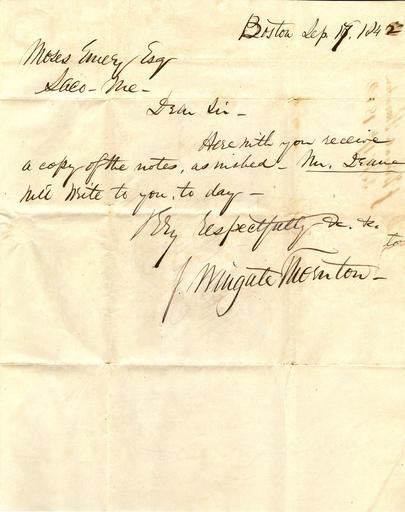 Boston Sep. 17, 1842
Moses Emery Esq
Saco - Me -
Dear Sir -
Herewith you receive
a copy of the notes, as wished - Mr. Deane
will write to you, to day -
Very Respectfully &c. &c.
to
J. Wingate Thornton -